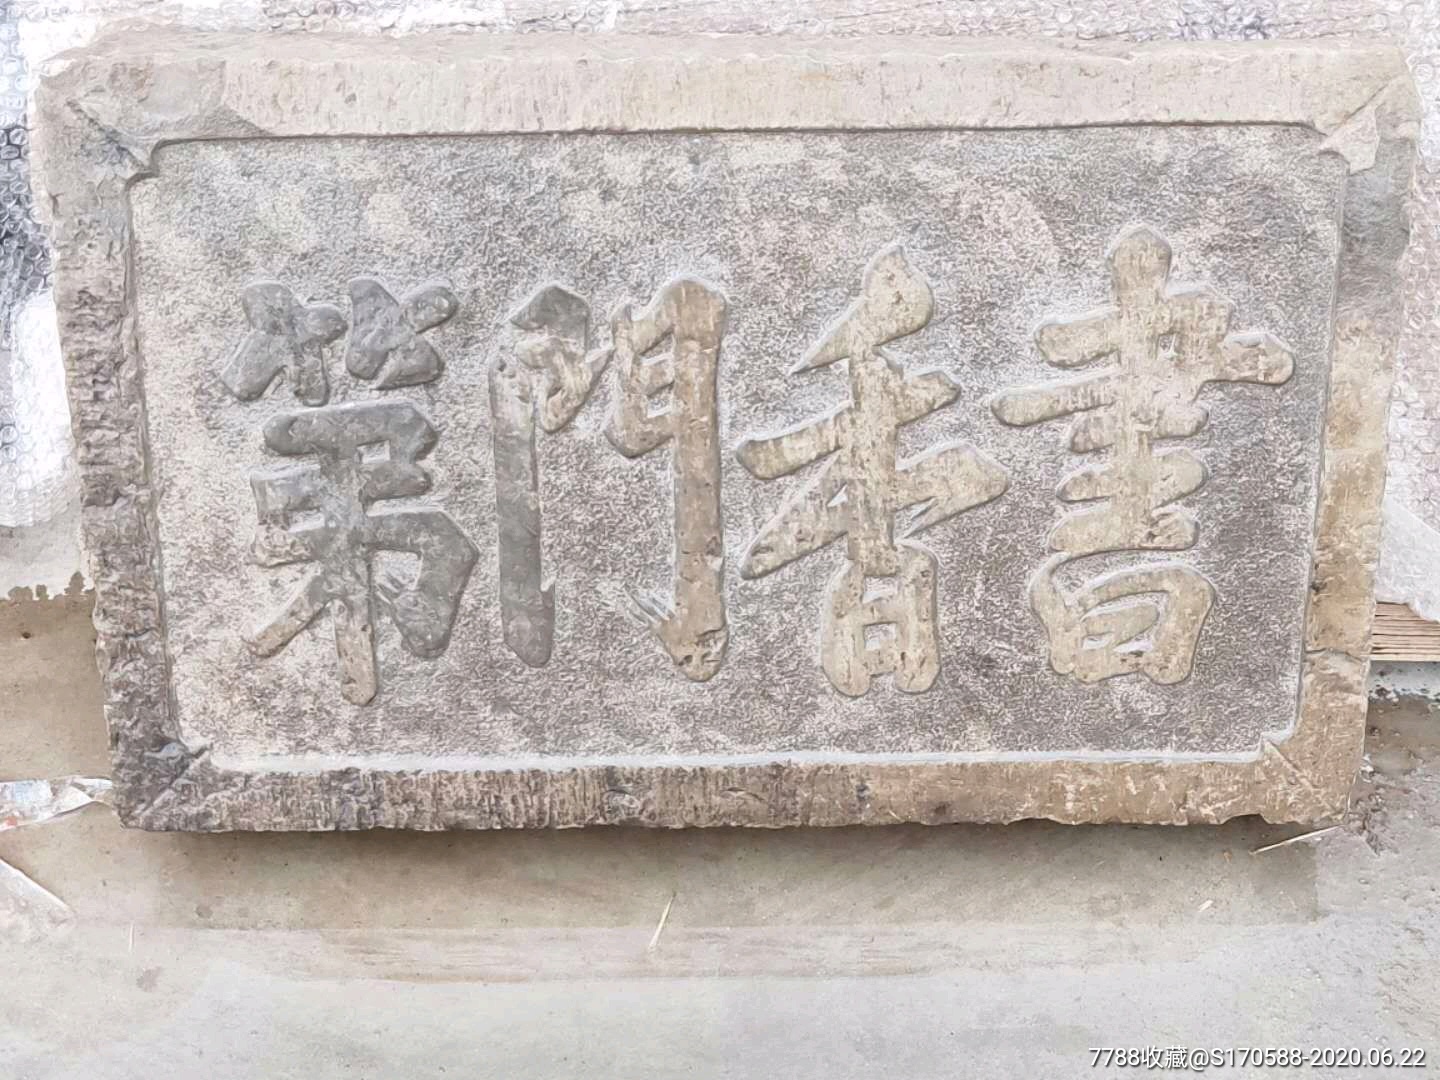 書香門第
7788收藏@S170588-2020.06.22